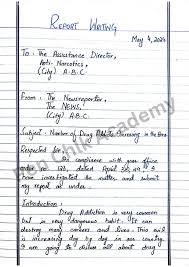 REPORT WRITING
May 4, 2024
To : The Assistance Director,
Anti-Narcotics,
(City) A.B.C.
From : The Newsreporter,
The NEWS,
(City) A.B.C.
Subject : Number of Drug Addicts Increasing in the Area
Respected Sir
In compliance with your office
order no. dated April 30, I
have investigated the matter and submit
my report as under.
Introduction:
Drug Addiction is very common
but is very dangerous habit. It can
destroy many careers and lives. This evil
is increasing day by day in our country.
are going to discuss about drug
Academy